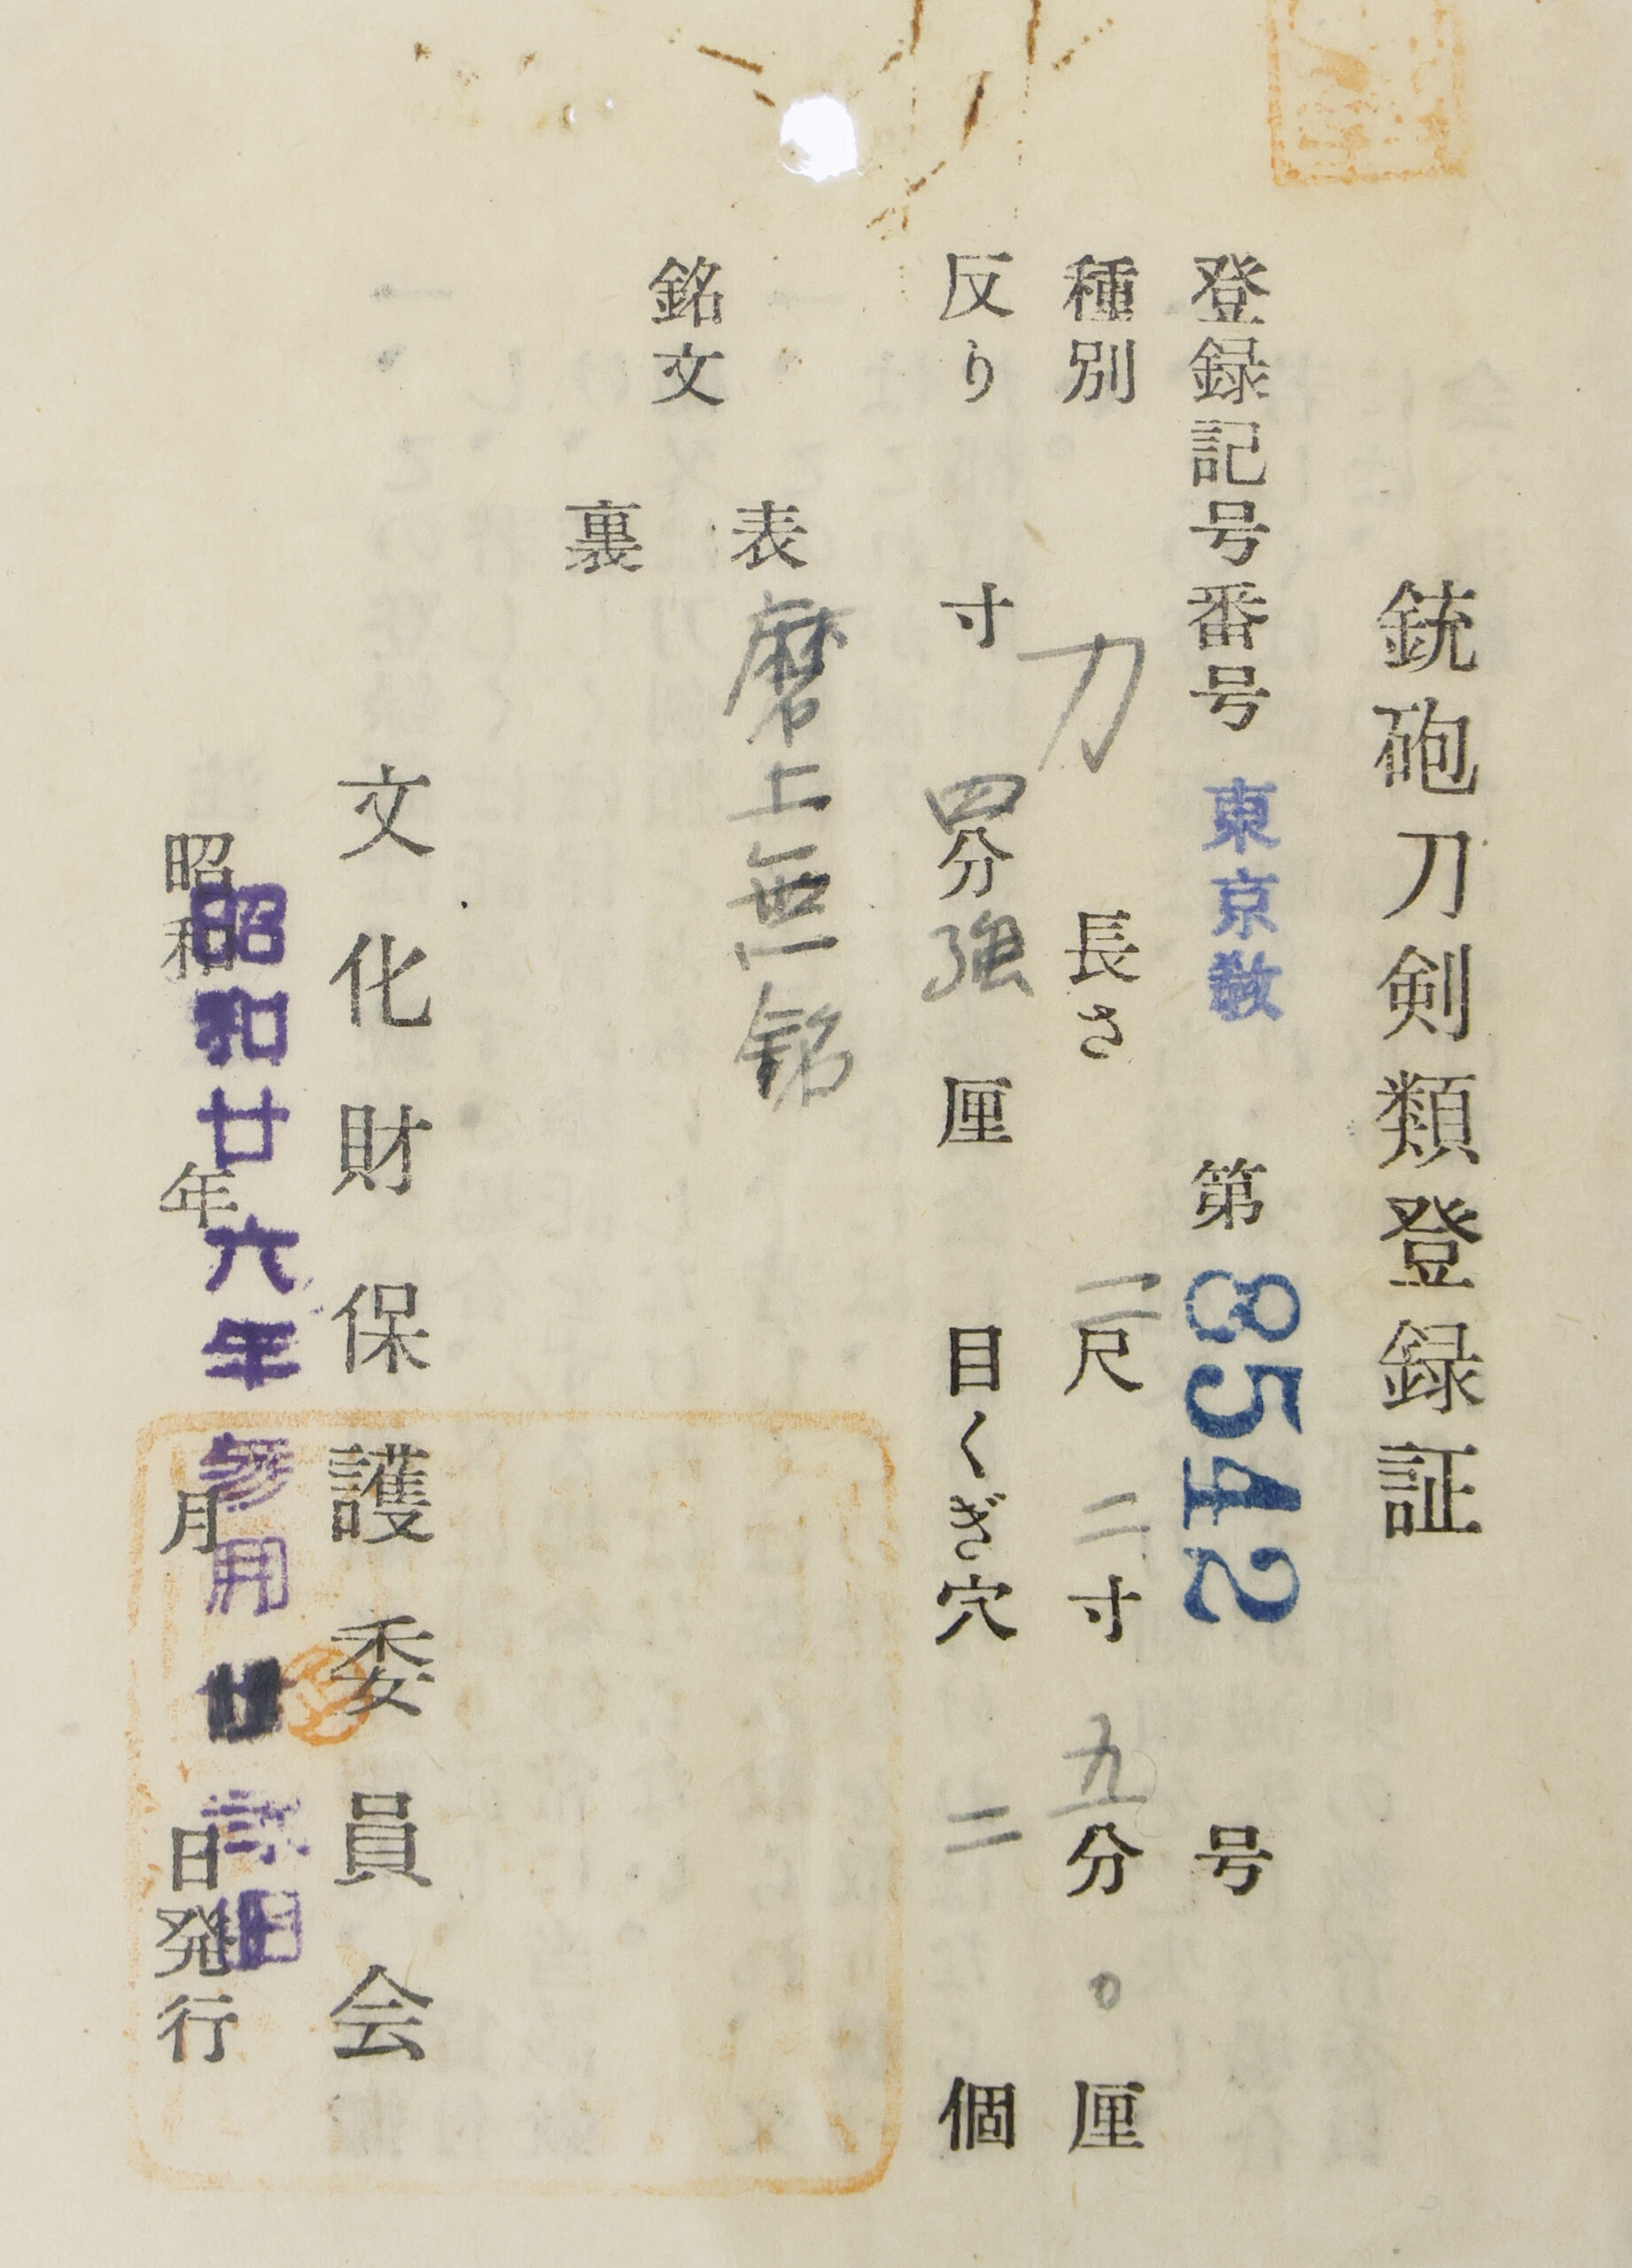 銃砲刀剣類登録証
登録記号番号 東京教 第8542号
種別 刀 長さ 二尺二寸九分〇厘
反り 寸四分強 厘 目くぎ穴 二個
銘文
表 磨上無銘
裏
文化財保護委員会
昭和 年 月 日発行
昭和廿六年参月 日